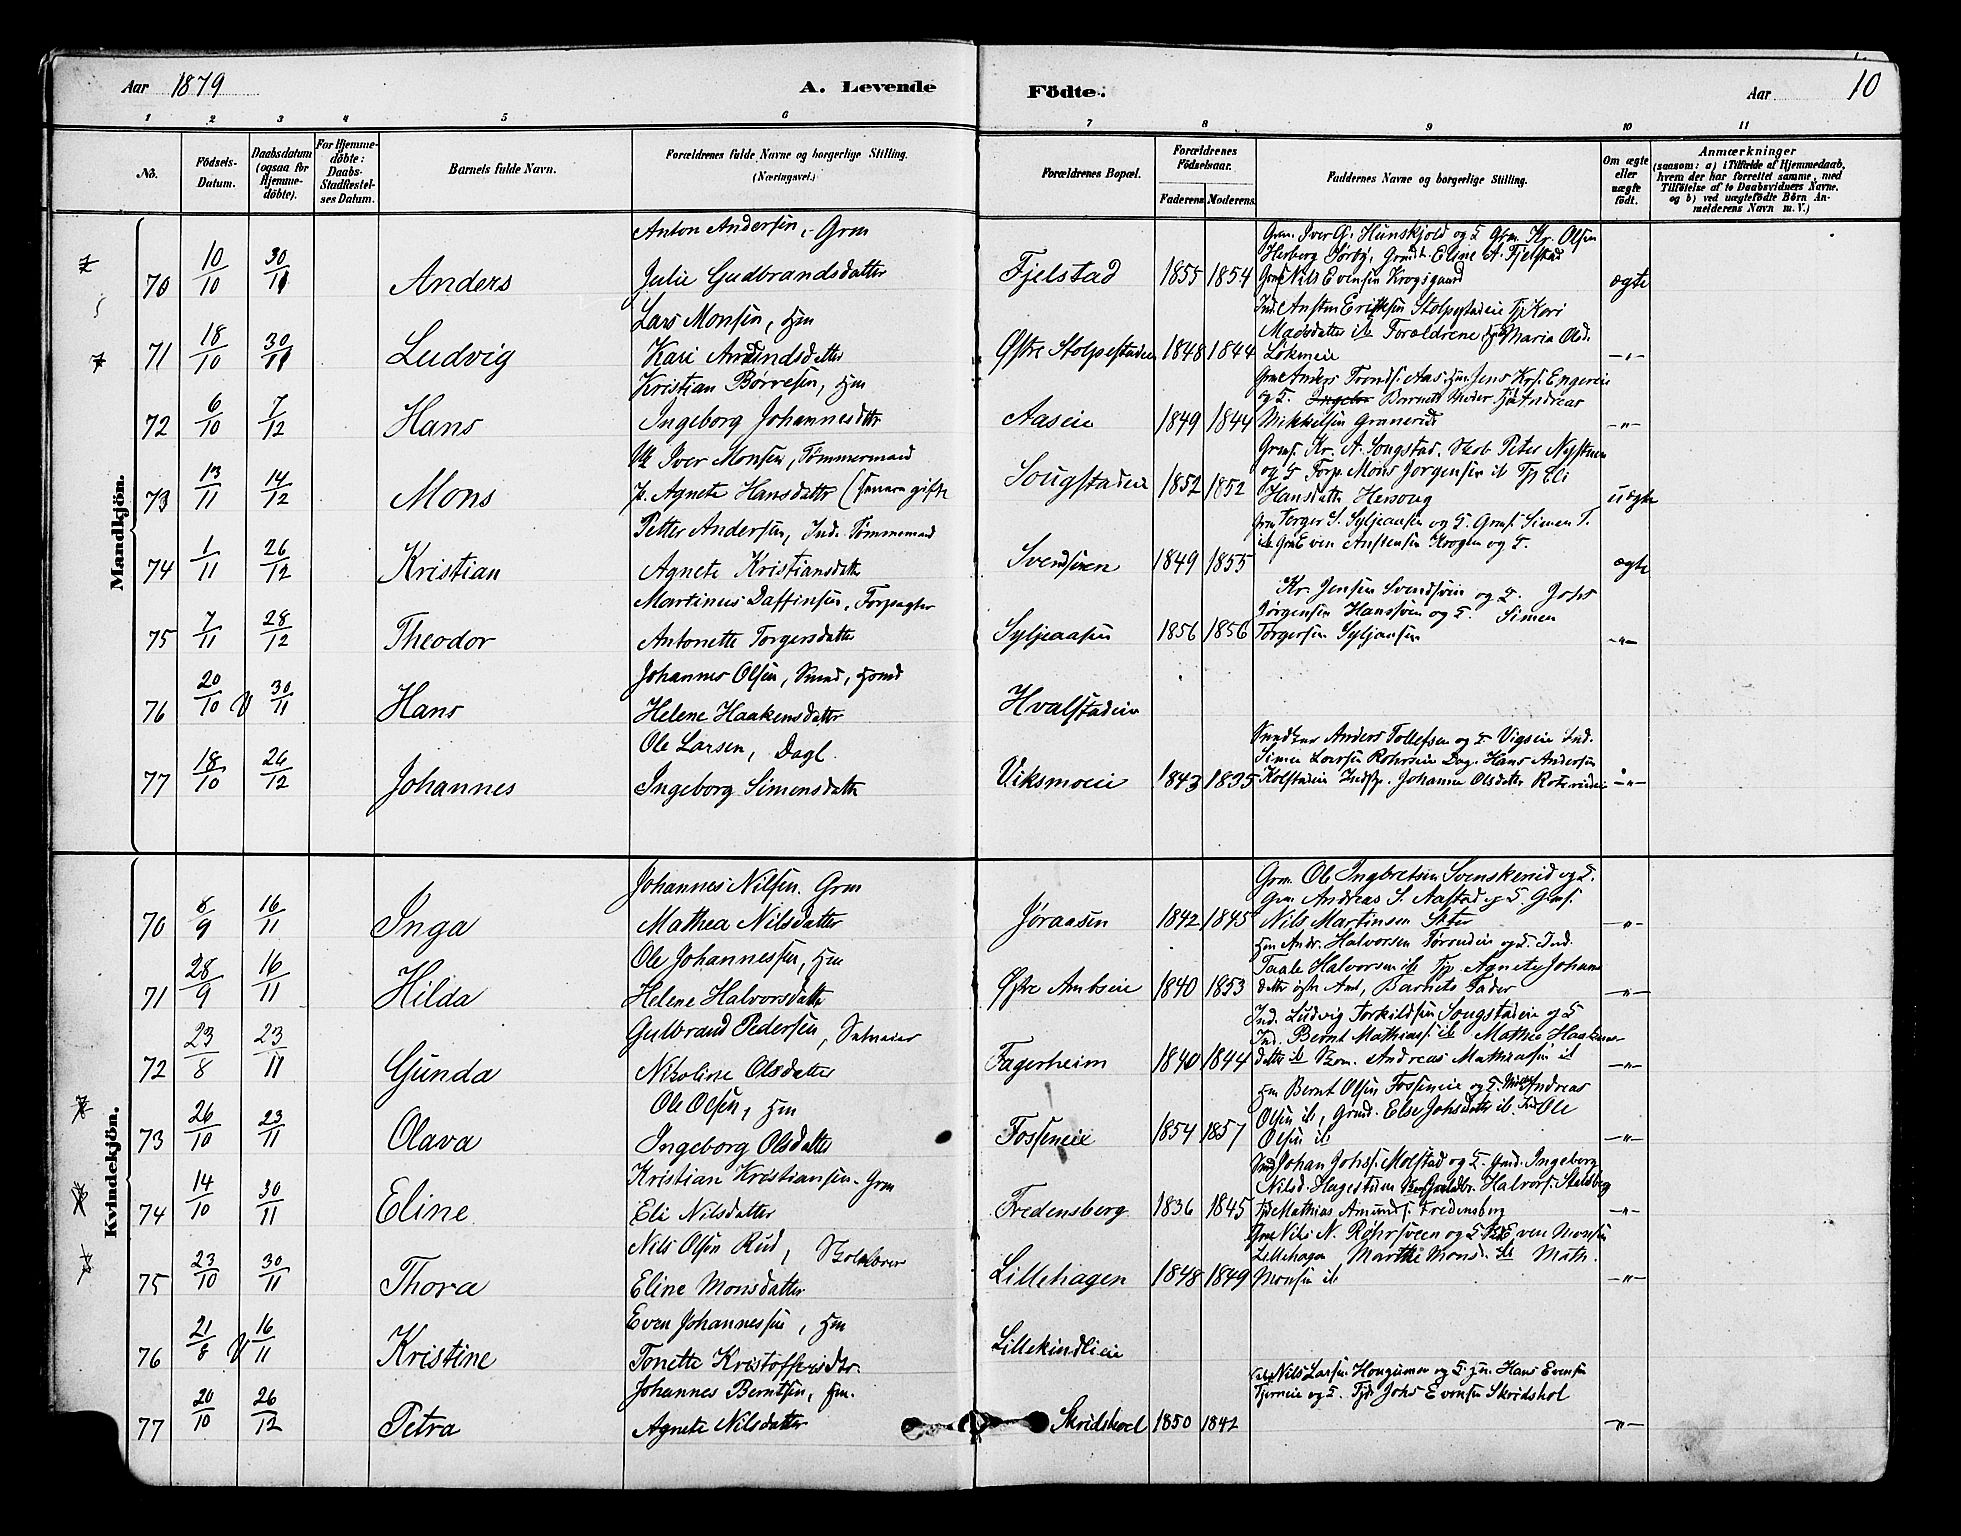 Aar 1879 A. Levende Födte. Aar 10
1 2 3 4 5 6 7 8 9 10 11
No.
Födsels-Datum.
Daabsdatum (ogsaa for Hjemme-döbte).
For Hjemme-döbte: Daabs-Stadfæstelses Datum.
Barnets fulde Navn.
Forældrenes fulde Navne og borgerlige Stilling.
(Næringsvei.)
Forældrenes Bopæl.
Forældrenes Födselsaar.
Faderens Moderens
Faddernes Navne og borgerlige Stilling.
Om ægte eller uægte födt.
Anmærkninger
(saasom: a) i Tilfælde af Hjemmedaab, hvem der har forrettet samme, med Tilföielse af to Daabsvidners Navne, og b) ved uægtefödte Börn Anmelderens Navn m. V.)
Mandkjön.
70 10/10 30/11 Anders
Anton Andersen, Grm
Julie Gudbrandsdatter
Fjelstad 1855 1854
Grm. Iver G. Hunskjold og F Grm. Kr. Olsen
Herberg Sørby, Gmdt. Eline A. Fjelstad
Grms Nils Evensen Krogsgaard
ægte
71 18/10 30/11 Ludvig
Lars Monsen, Hm
Kari Amundsdatter
Østre Stolpestadeie 1848 1844
Ind. Ansten Eriksen Stolpestadeie Tj Kari
Madsdatter ib Forældrene Maria Olsd.
Løkmeie
-"-
72 6/10 7/12 Hans
Kristian Børresen, Hm
Ingeborg Johannesdatter
Aaseie 1849 1844
Grm Anders Trondss. Aas Hm Jens Krs. Engereie
og F. Barnets Moder Tj Andreas
Mikkelsen Granerud
-"-
73 13/11 14/12 Mons
Uk Iver Monsen, Tømmermand
p. Agnete Hansdatter (senere gifte
Sougstadeie 1852 1852
Grms. Kr. A. Songstad, Skob Peter Nystuen
og F Forp. Mons Jørgensen ib Tp Eli
Hansdatter Hersoug
uægte
74 1/11 26/12 Kristian
Petter Andersen, Ind. Tømmermand
Agnete Kristiansdatter
Svendsveen 1849 1855
Grm Torger S. Syljeaasen og F. Grms. Simen T.
ib Grm Even Anstensen Krogen og F.
ægte
75 7/11 28/12 Theodor
Martinus Daffinsen, Forpagter
Antonette Torgersdatter
Syljeaasen 1856 1856
Kr. Jensen Svendsveen og F. Johs
Jørgensen Hanssveen og F. Simen
Torgersen Syljeaasen
-"-
76 20/10 V 30/11 Hans
Johannes Olsen, Smed, Hsmd
Helene Haakensdatter
Hvalstadeie
77 18/10 26/12 Johannes
Ole Larsen, Dagl
Ingeborg Simensdatter
Viksmoeie 1843 1835
Anders Tollefsen og F Vigseie Ind.
Simen Larsen Rohrseie Dag. Hans Andersen
Kolstadeie Indstr. Johanne Olsdatter
-"-
Kvindekjön.
70 8/9 16/11 Inga
Johannes Nilsen. Grm
Mathea Nilsdatter
Jøraasen 1842 1845
Grm. Ole Ingbretsen Svenskerud og F.
Grm Andreas S. Aastad og F. Gms.
Nils Martinsen Sæter
-"-
71 28/9 16/11 Hilda
Ole Johannessen, Hm
Helene Halvorsdatter
Østre Ambseie 1840 1853
Hm Andr. Halvorsen Tørrudeie og F. Ind.
Taale Halvorsen ib Tp. Agnete Johans
datter østre Amb, Barnets Fader
-"-
72 23/8 23/11 Gunda
Gulbrand Pedersen, Salmaker
Nikoline Olsdatter
Fagerheim 1840 1844
Ind. Ludvig Torkildsen Songstadeie og F
Ind. Bernt Mathiass. ib Mathea Haakens
datter ib Skom. Andreas Mathiasen ib
-"-
73 26/10 23/11 Olava
Ole Olsen, Hm
Ingeborg Olsdatter
Fosseneie 1854 1857
Hm Bernt Olsen Fosseneie og F. Andreas
Olsen ib, Grmd. Else Johsdatter ib Ole
Olsen ib
-"-
74 14/10 30/11 Eline
Kristian Kristiansen. Grm
Eli Nilsdatter
Fredensberg 1836 1845
Johan Johss. Molstad og F. Gmd. Ingeborg
Nilsd. Hagestuen Halvors. Skelsberg
Mathias Amunds. Fredensberg
-"-
75 23/10 30/11 Thora
Nils Olsen Rud, Skolelærer
Eline Monsdatter
Lillehagen 1848 1849
Grm Nils N. Røhrsveen og F. Even Monsen
Lillehagen Marthe Monsd. ib Math.
Monsen ib
-"-
76 21/8 V 16/11 Kristine
Even Johannessen, Hm
Tonette Kristoffersdtr.
Lillekindlieie
77 20/10 26/12 Petra
Johannes Berntsen, Hm.
Agnete Nilsdatter
Skridshoel 1850 1842
Nils Larsen Hougumen og F. Hm. Hans Evensen
Tjerneie og F. Johs Evensen Skridshol
-"-